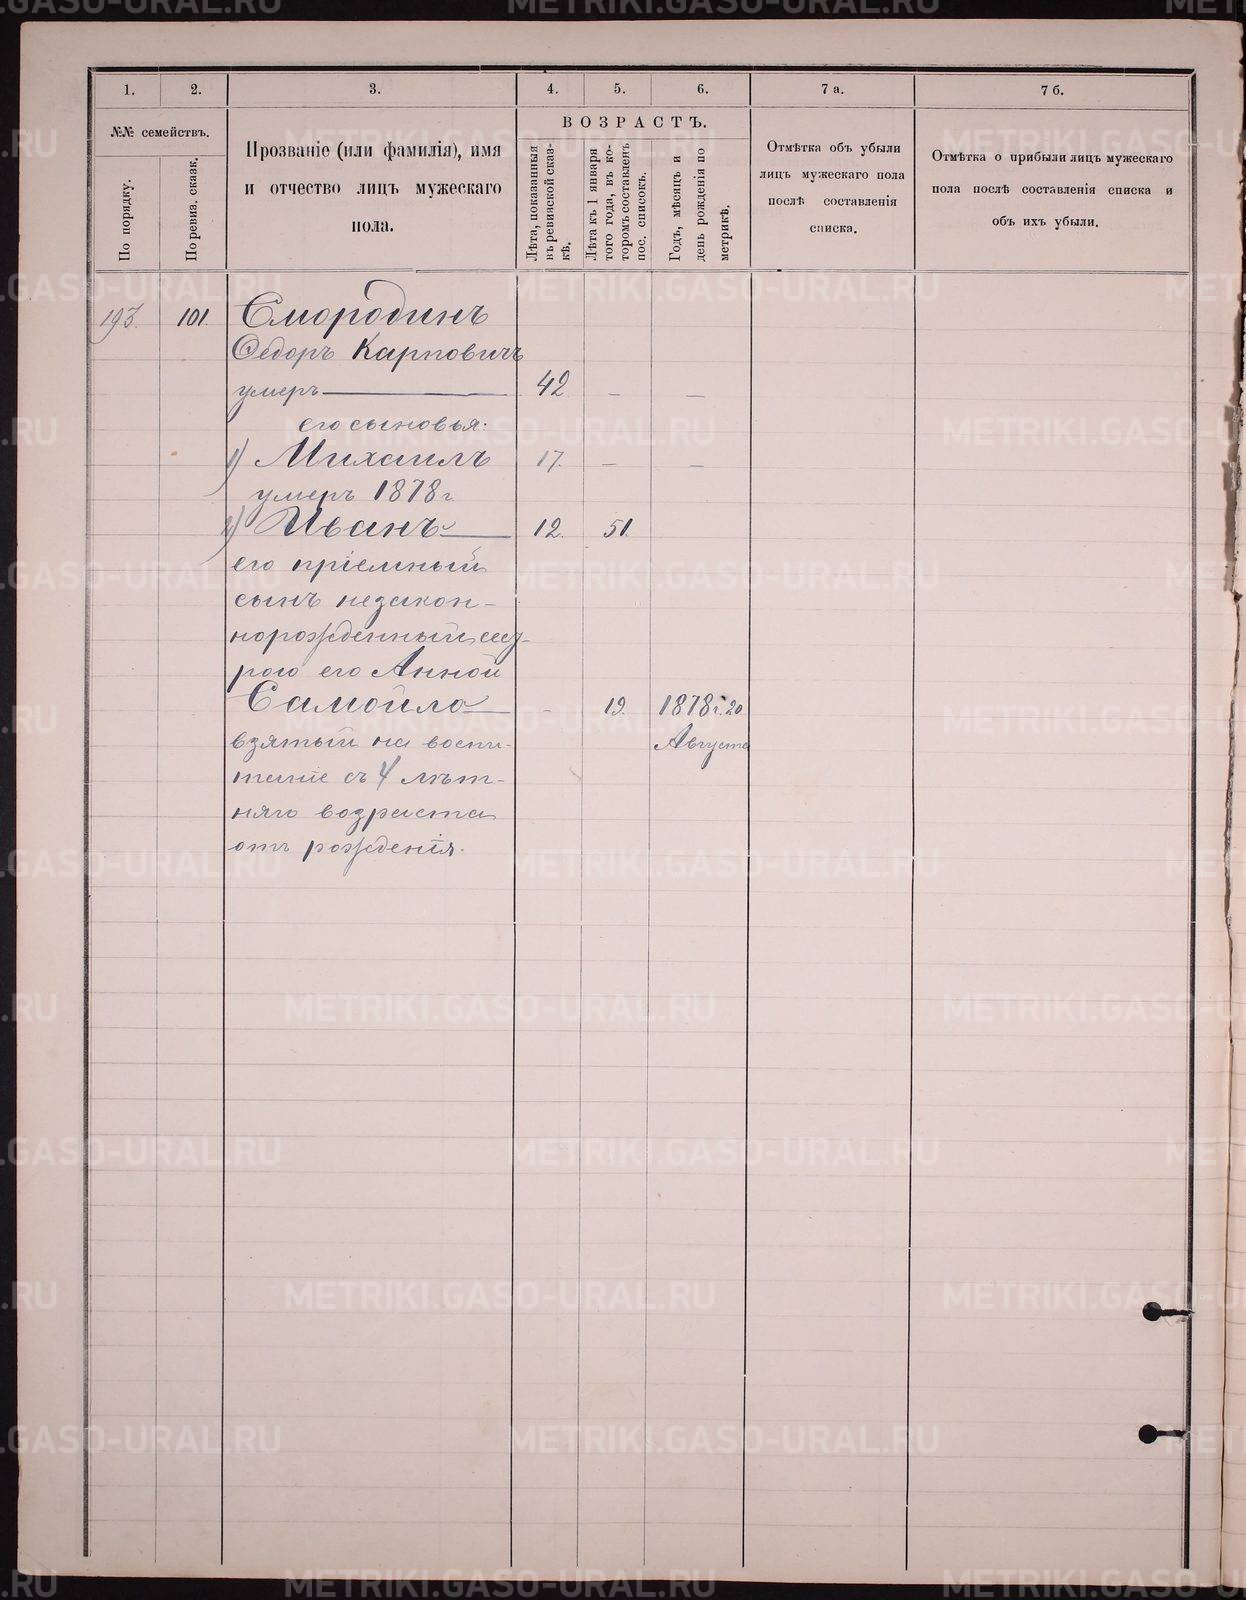 1.
2.
3.
4.
5.
6.
7 а.
7 б.
№№ семействъ.
По порядку.
По ревиз. сказк.
Прозваніе (или фамилія), имя
и отчество лицъ мужескаго
пола.
ВОЗРАСТЪ.
Лѣта, показанныя
въ ревизской сказ-
кѣ.
Лѣта къ 1 января
того года, въ ко-
торомъ составленъ
пос. списокъ.
Годъ, мѣсяцъ и
день рожденія по
метрикѣ.
Отмѣтка объ убыли
лицъ мужескаго пола
послѣ составленія
списка.
Отмѣтка о прибыли лицъ мужескаго
пола послѣ составленія списка и
объ ихъ убыли.
193. 101. Смородинъ
Федоръ Карповичъ
умеръ — 42 — —
его сыновья:
1) Михаилъ 17. — —
умеръ 1878 г
2) Иванъ — 12. 51.
его пріемный
сынъ незакон-
норожденный сест-
рою его Анной
Самойло — - 19. 1878 г. 20
взятый на воспи- Августа
таніе съ 4 лѣт-
няго возраста
отъ рожденія.
METRIKI.GASO-URAL.RU